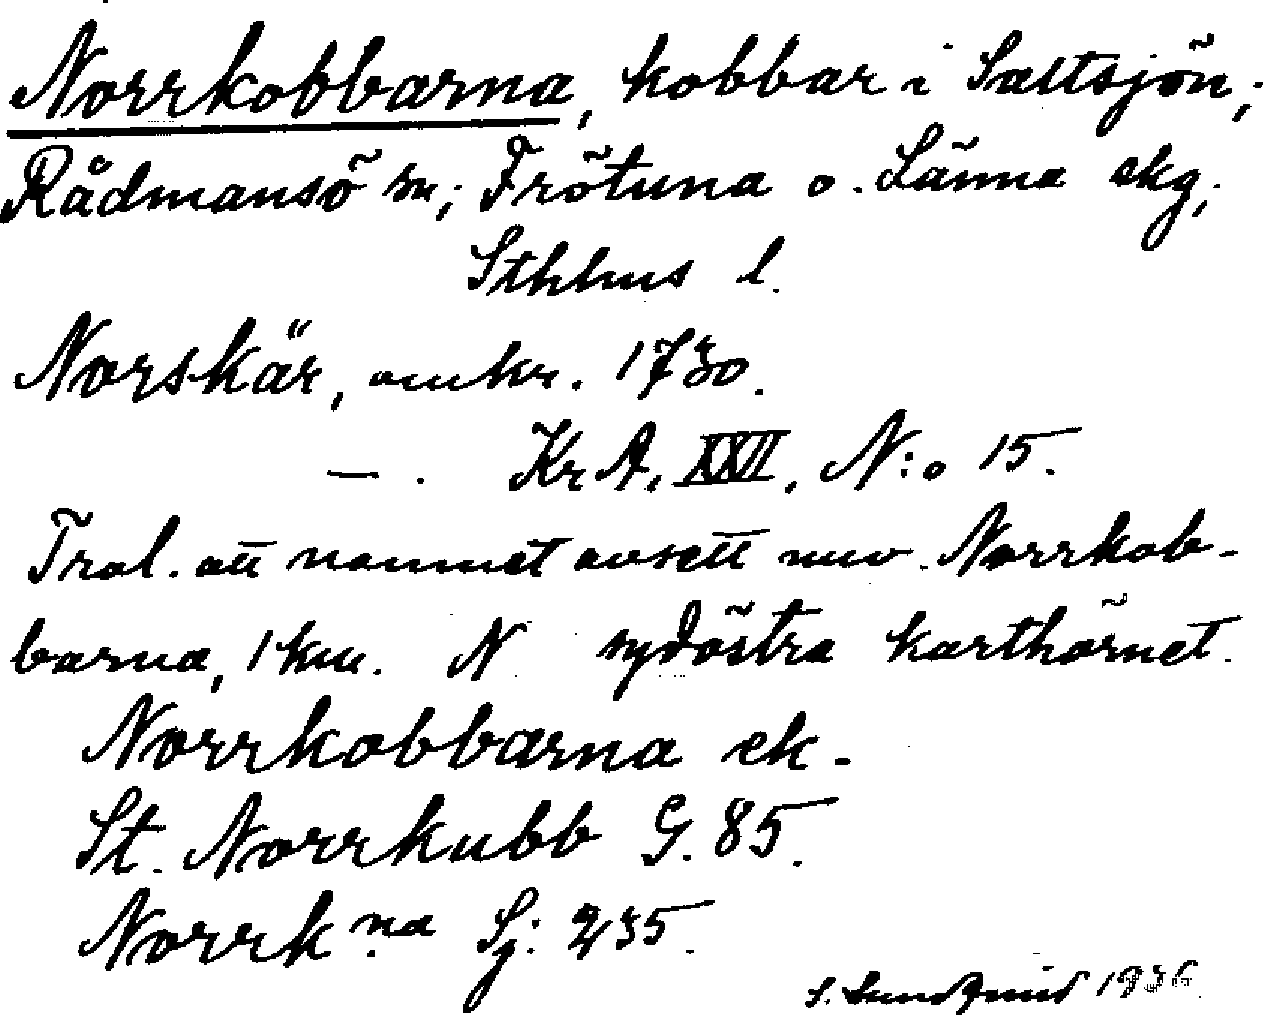 Norrkobbarna, kobbar i Saltsjön;
Rådmansö sn; Frötuna o. Länna skg;
Sthlms l.
Norskär, omkr. 1730.
— . KrA, XXII, N:o 15.
Trol. att namnet avsett nuv. Norrkob-
barna, 1 km. N sydöstra karthörnet.
Norrkobbarna ek.
St. Norrkubb G. 85.
Norrk.na Sj: 235.
S. Sundqvist 1936